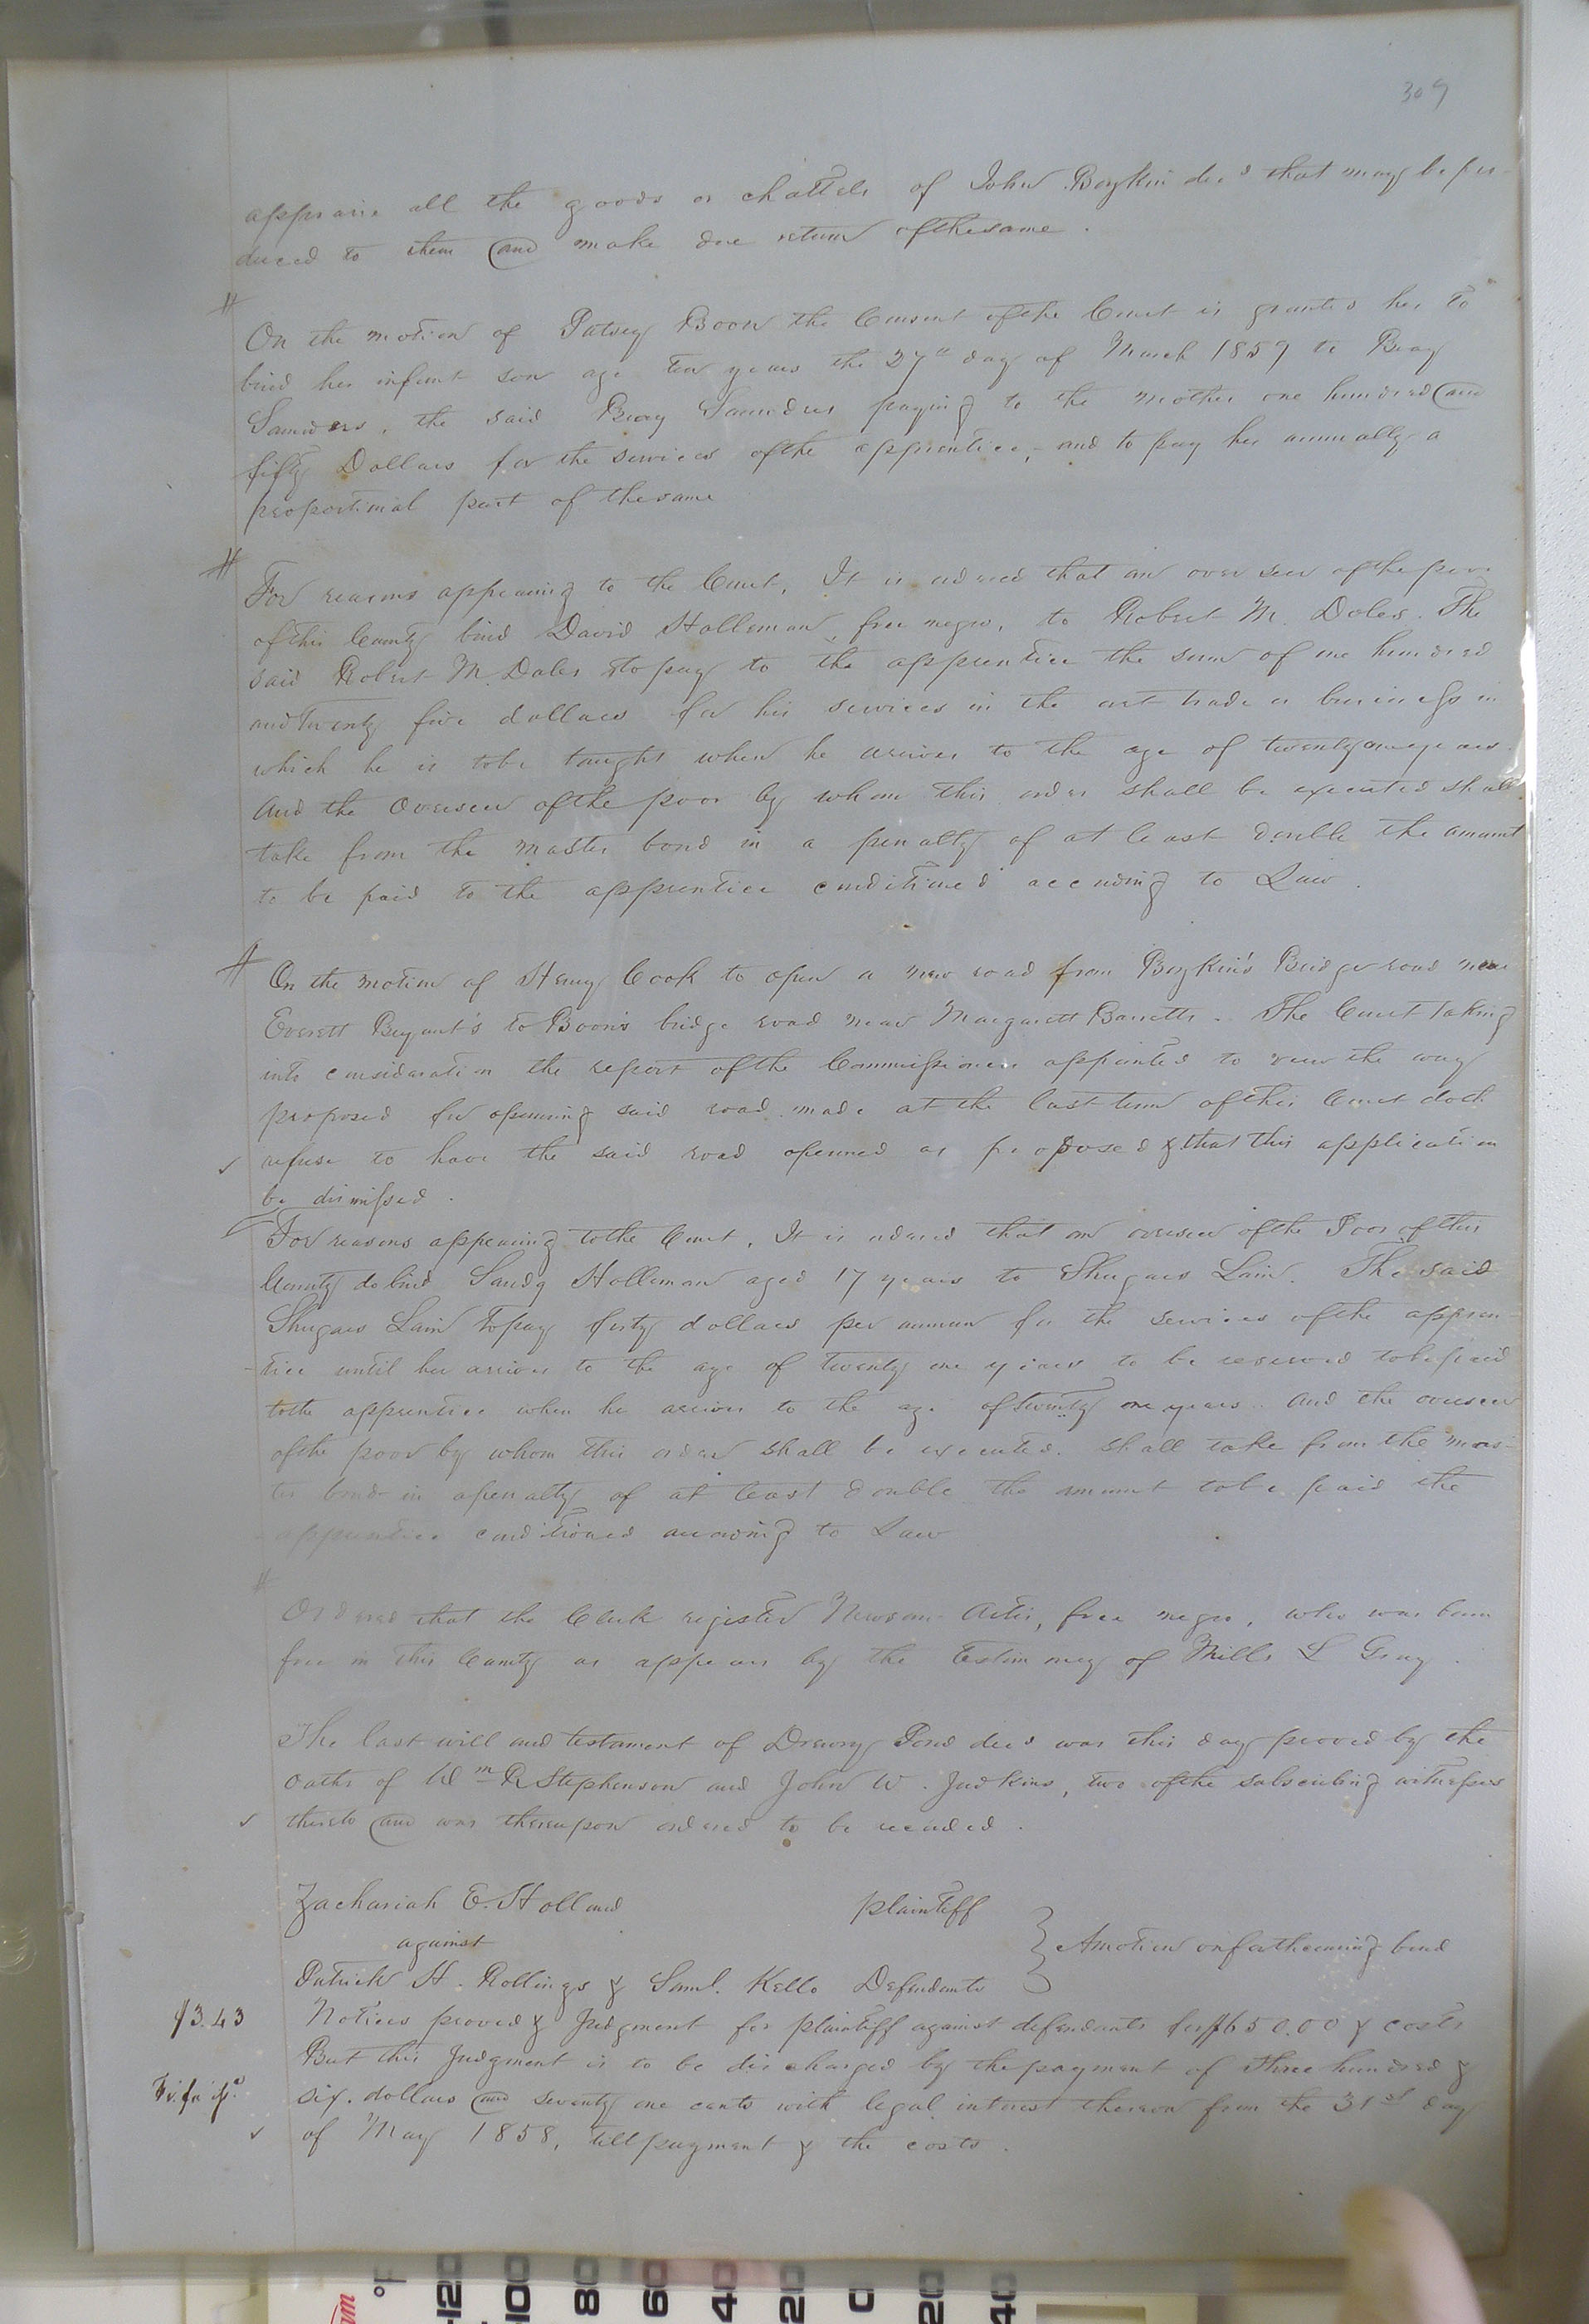 309
appraise all the goods or chattels of John Boykin decd that may be pro-
duced to them and make due return of the same.
#
On the motion of Patsey Boon the Consent of the Court is granted her to
bind her infant son age ten years the 27th day of March 1859 to Bray
Saunders, the said Bray Saunders paying to the mother one hundred and
fifty Dollars for the services of the apprentice, - and to pay her annually a
proportional part of the same
#
For reasons appearing to the Court, It is ordered that an overseer of the poor
of this County bind David Holleman, free negro, to Robert M. Doles. The
said Robert M. Doles to pay to the apprentice the sum of one hundred
and Twenty five dollars for his services in the art trade or business in
which he is to be taught when he arrives to the age of twenty one years.
And the Overseer of the poor by whom this order shall be executed shall
take from the master bond in a penalty of at least double the amount
to be paid to the apprentice conditioned according to Law.
#
On the motion of Henry Cook to open a new road from Boykin's Bridge road near
Everett Bryant's to Boon's bridge road near Margarett Barretts. The Court taking
into consideration the report of the Commissioners appointed to view the way
proposed for opening said road made at the last term of this Court doth
refuse to have the said road openned as proposed & that this application
be dismissed.
For reasons appearing to the Court, It is ordered that an overseer of the Poor of this
County do bind Sandy Holleman aged 17 years to Shugars Lain. The said
Shugars Lain to pay forty dollars per annum for the services of the appren-
-tice until he arrives to the age of twenty one years to be reserved to be paid
to the apprentice when he arrives to the age of twenty one years. And the overseer
of the poor by whom this order shall be executed shall take from the mas-
ter bond in a penalty of at least double the amount to be paid the
apprentice conditioned according to Law
#
Ordered that the Clerk register Newsom Artis, free negro, who was born
free in this County as appears by the testimony of Mills L Gray.
The last will and testament of Drewry Pond decd was this day proved by the
oaths of Wm R Stephenson and John W. Judkins, two of the subscribing witnesses
thereto and was thereupon ordered to be recorded.
Zachariah E. Holland plaintiff
against
A motion on forthcoming bond
Patrick H. Rollings & Saml. Kello Defendants
$3.43
Notices proved & Judgment for plaintiff against defendants for $650.00 & costs
But this Judgment is to be discharged by the payment of Three hundred &
Fi. fa
six dollars and seventy one cents with legal interest thereon from the 31st day
of May 1858, till payment & the costs.
°F
120 100 80 60 40 20 0 20 40